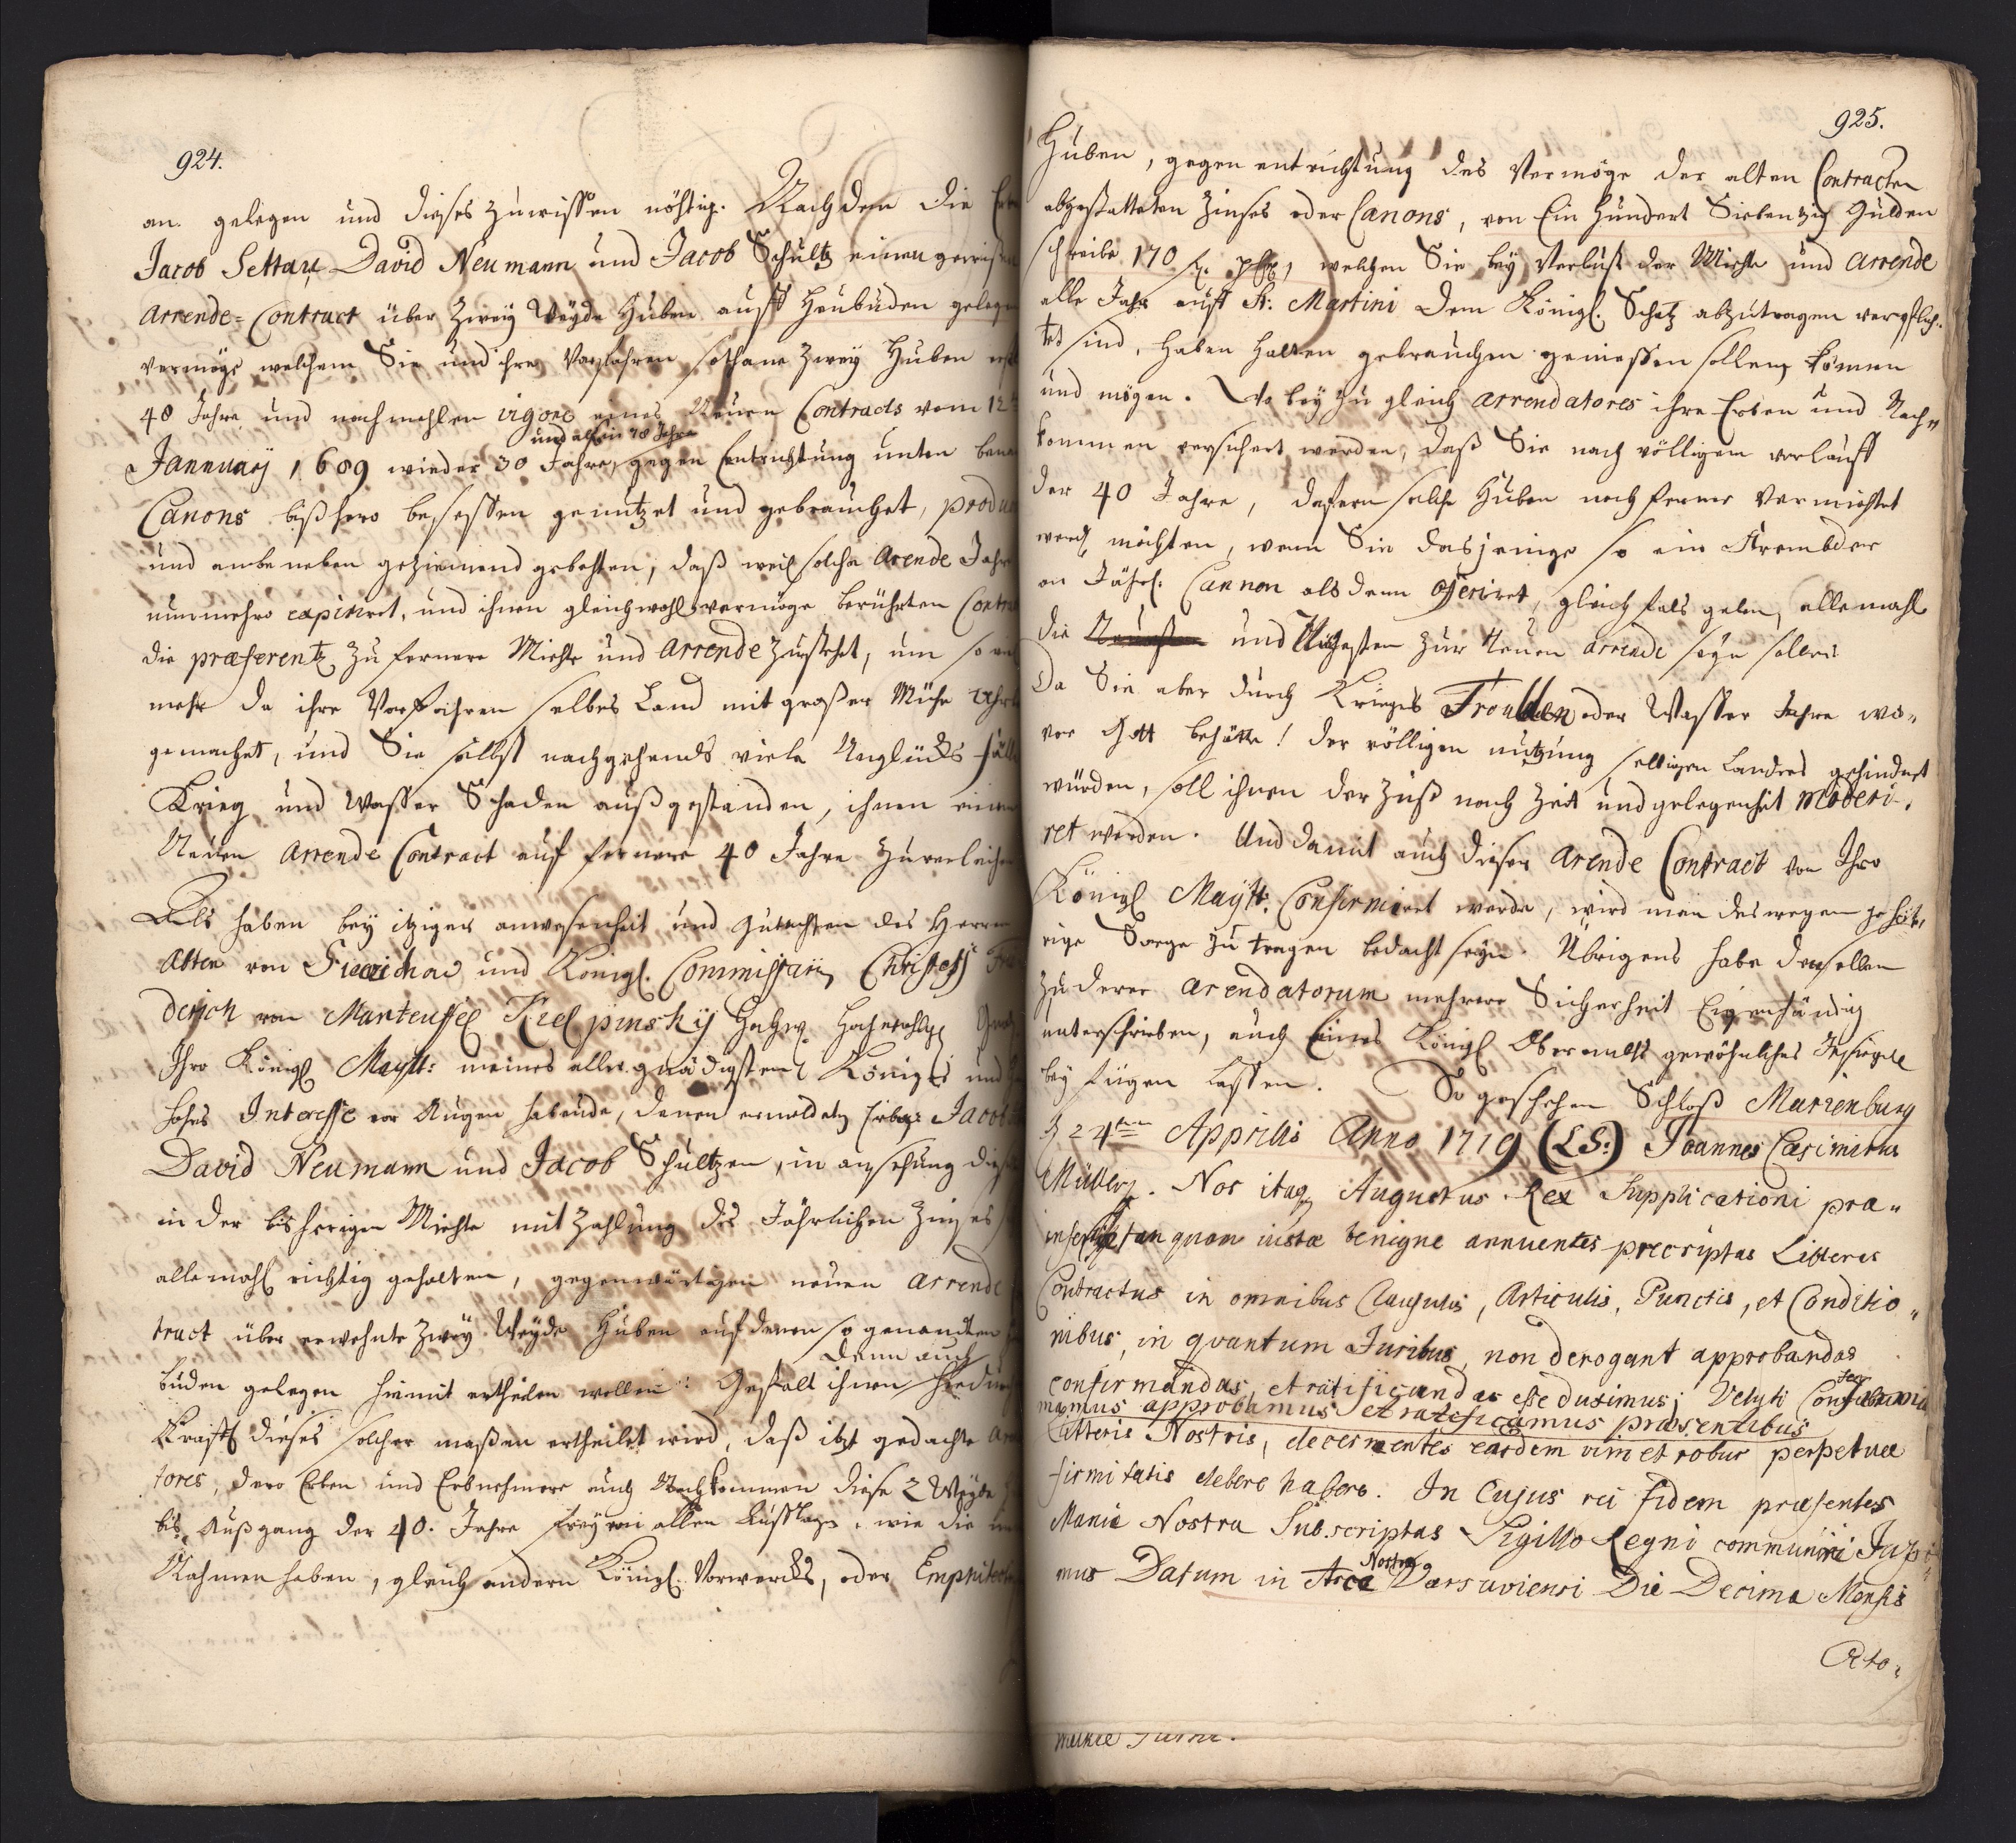 924.
an. gelegen und dieses zu wissen nöhtig. Nachdem die
Jacob Settau, David Neumann und Jacob Schultz einen gewissen
Arrende-Contract über zwey Weyde Huben auff Heubuden gelegen
vermöge welchem Sie und ihre Vorfahren sothane zwey Huben erst
40 Jahre und nachmahlen vigore eines Neuen Contracts vom 12
und also in 70 Jahre
Jannuarij 1689 wieder 30 Jahre, gegen Entrichtung unten
Canons bißhero besessen genutzet und gebrauchet,
und anbeneben geziemend gebehten, daß weil solche Arende Jahre
nunmehro expiriret, und ihnen gleichwohl vermöge berührten
die præferentz zu fernere Miehte und Arrende zustehet, um so
mehr da ihre Vorfahren selbes Land mit großer Mühe
gemachet, und Sie selbst nachgehends viele Unglücks
Krieg und Wasser Schaden außgestanden, ihnen einen
Neuen Arrende Contract auf fernere 40 Jahre zu verleihen
Als haben bey itziger anwesenheit und Gutachten des Herren
Abten von und Königl. Commissarii, Christoff
derich von Manteuffel Kielpinskij
Ihro Königl Maytt: meines allergnädigsten Königes und
hohes Interesse vor Augen habende, denen ermeldeten Jacob
David Neumann und Jacob Schultzen, in ansehung
in der bisherigen Miehte mit Zahlung des Jährlichen Zinses
allemahl richtig gehalten, gegenwärtigen neuen Arrende
tract über erwehnte zwey Weyde Huben auf denen so genandten
denn auch
buden gelegen hiemit ertheilen wollen: Gestalt ihnen
Krafft dieses solcher maßen ertheilet wird, daß itzt gedachte
tores, dero Erben und Erbnehmere auch Nachkommen diese 2 Weyde
bis Außgang der 40. Jahre frey von allen Aufflage, wie die
Nahmen haben, gleich andern Königl. Vorwercks, oder
925.
Huben, gegen entrichtung des Vermöge der alten Contracten
abgestatteten Zinses oder Canons, von Ein Hundert Siebentzig Gulden
schreibe 170 welchen Sie bey Verlust der Miehte und Arrende
alle Jahr auff St: Martini dem Königl. Schatz abzutragen verpflich-
tet sind, haben halten gebrauchen geniessen sollen können
und mögen. Wobey zu gleich Arrendatores ihre Erben und Nach-
kommen versichert werden, daß Sie nach völligem verlauff
der 40 Jahre, dafern solche Huben noch ferner Vermiehtet
werd möchten, wenn Sie dasjenige so ein Frembder
an Jährl: Cannon alsdenn offeriret, gleich fals geben, allemahl
die und Nähesten zur Neuen Arrende seyn sollen
Da Sie aber durch Krieges Troublen oder Wasser Jahre wo-
vor Gott behütte! der völligen nutzung selbigen Landes gehindert
würden, soll ihnen der Zinß nach Zeit und gelegenheit moderi-
ret werden. Und damit auch dieser Arende Contract von Ihro
Königl Maytt: Confirmiret werde, wird man deswegen gehö-
rige Sorge zu tragen bedacht seyn. Übrigens habe denselben
zu derer Arendatorum mehrere Sicherheit Eigenhändig
unterschrieben, auch Eines Königl Oberambts gewöhnliches Insiegel
bey fügen lassen. So geschehen Schloß Marienburg
d 24ten Apprilis Anno 1719 (LS:) Joannes Casimirus
Müller. Nos itaq Augustus Rex Supplicationi præ-
insertæ tanquam iustæ benigne annuentes precriptas Litteras
Contractus in omnibus Clausulis, Articulis, Punctis, et Conditio-
nibus, in quantum Juribus, non derogant approbandas
confirmandas, et ratificandas esse duximus; Veluti
mamus approbamus et ratificamus præsentibus
Litteris Nostris, decernentes easdem vim et robur perpetuæ
firmitatis debere habere. In Cujus rei fidem præsentes
Manie Nostra Subscriptas Sigillo Regni communiri
Nostra
mus Datum in Arce Varsaviensi Die Decima Mensis
Octo-